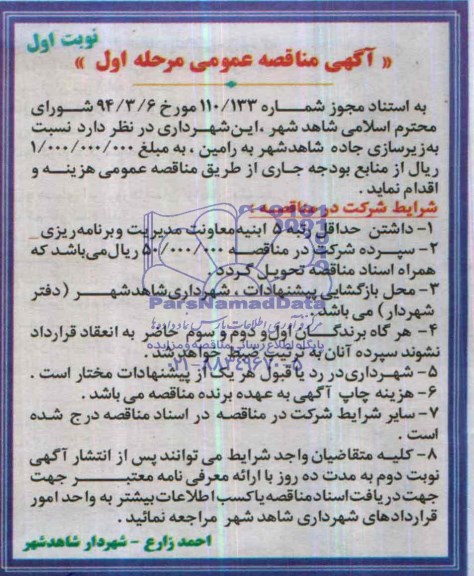 نوبت اول
« آگهی مناقصه عمومی مرحله اول »
به استناد مجوز شماره ۱۱۰/۱۳۳ مورخ ۹۴/۳/۶ شورای
محترم اسلامی شاهد شهر ، این شهرداری در نظر دارد نسبت
به زیرسازی جاده شاهدشهر به رامین ، به مبلغ ۱/۰۰۰/۰۰۰/۰۰۰
ریال از منابع بودجه جاری از طریق مناقصه عمومی هزینه و
اقدام نماید .
شرایط شرکت در مناقصه :
۱- داشتن حداقل رتبه ۵ ابنیه معاونت مدیریت و برنامه ریزی
۲- سپرده شرکت در مناقصه ۵۰/۰۰۰/۰۰۰ ریال می باشد که
همراه اسناد مناقصه تحویل گردد
۳- محل بازگشایی پیشنهادات ، شهرداری شاهدشهر ( دفتر
شهردار ) می باشد .
۴- هر گاه برندگان اول و دوم و سوم حاضر به انعقاد قرارداد
نشوند سپرده آنان به ترتیب ضبط خواهد شد .
۵- شهرداری در رد یا قبول هر یک از پیشنهادات مختار است .
۶- هزینه چاپ آگهی به عهده برنده مناقصه می باشد .
۷- سایر شرایط شرکت در مناقصه در اسناد مناقصه درج شده
است .
۸- کلیه متقاضیان واجد شرایط می توانند پس از انتشار آگهی
نوبت دوم به مدت ده روز با ارائه معرفی نامه معتبر جهت
جهت دریافت اسناد مناقصه یا کسب اطلاعات بیشتر به واحد امور
قراردادهای شهرداری شاهد شهر مراجعه نمائید .
احمد زارع - شهردار شاهدشهر
ParsNamadData
پایگاه اطلاع رسانی مناقصه و مزایده
۰۲۱-۸۸۳۴۹۶۷۰-۵